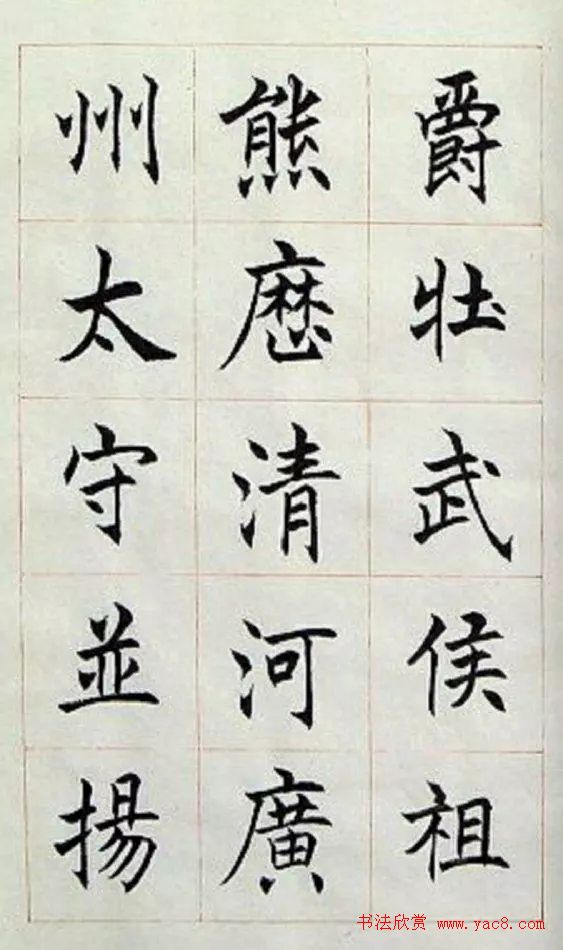 爵壮武侯祖
熊歴清河廣
州太守並揚
书法欣赏 www.yac8.com